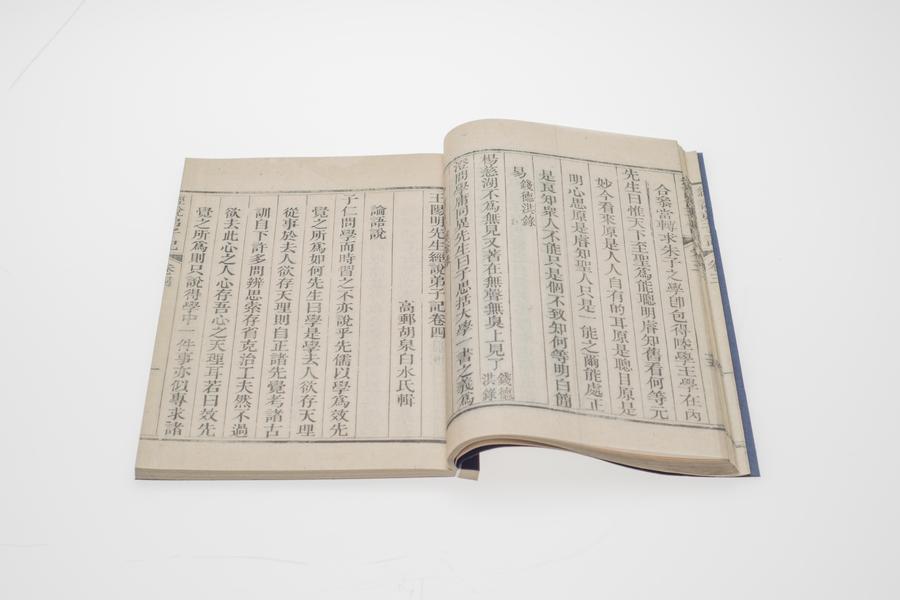 合參當轉求朱子之學卽包得陸學王學在內
先生曰惟天下至聖爲能聰明睿知舊看何等元
妙今看來原是人人自有的耳原是聰目原是
明心思原是睿知聖人只是一能之爾能處正
是良知衆人不能只是個不致知何等明白簡
易錢德洪錄
楊慈湖不爲無見又著在無聲無臭上見了錢德洪錄
澄問學庸同異先生曰子思括大學一書之義爲
王陽明先生經說弟子記卷四
高郵胡泉白水氏輯
論語說
子仁問學而時習之不亦說乎先儒以學爲效先
覺之所爲如何先生曰學是學去人欲存天理
從事於去人欲存天理則自正諸先覺考諸古
訓自下許多問辨思索存省克治工夫然不過
欲去此心之人心存吾心之天理耳若曰效先
覺之所爲則只說得學中一件事亦似專求諸